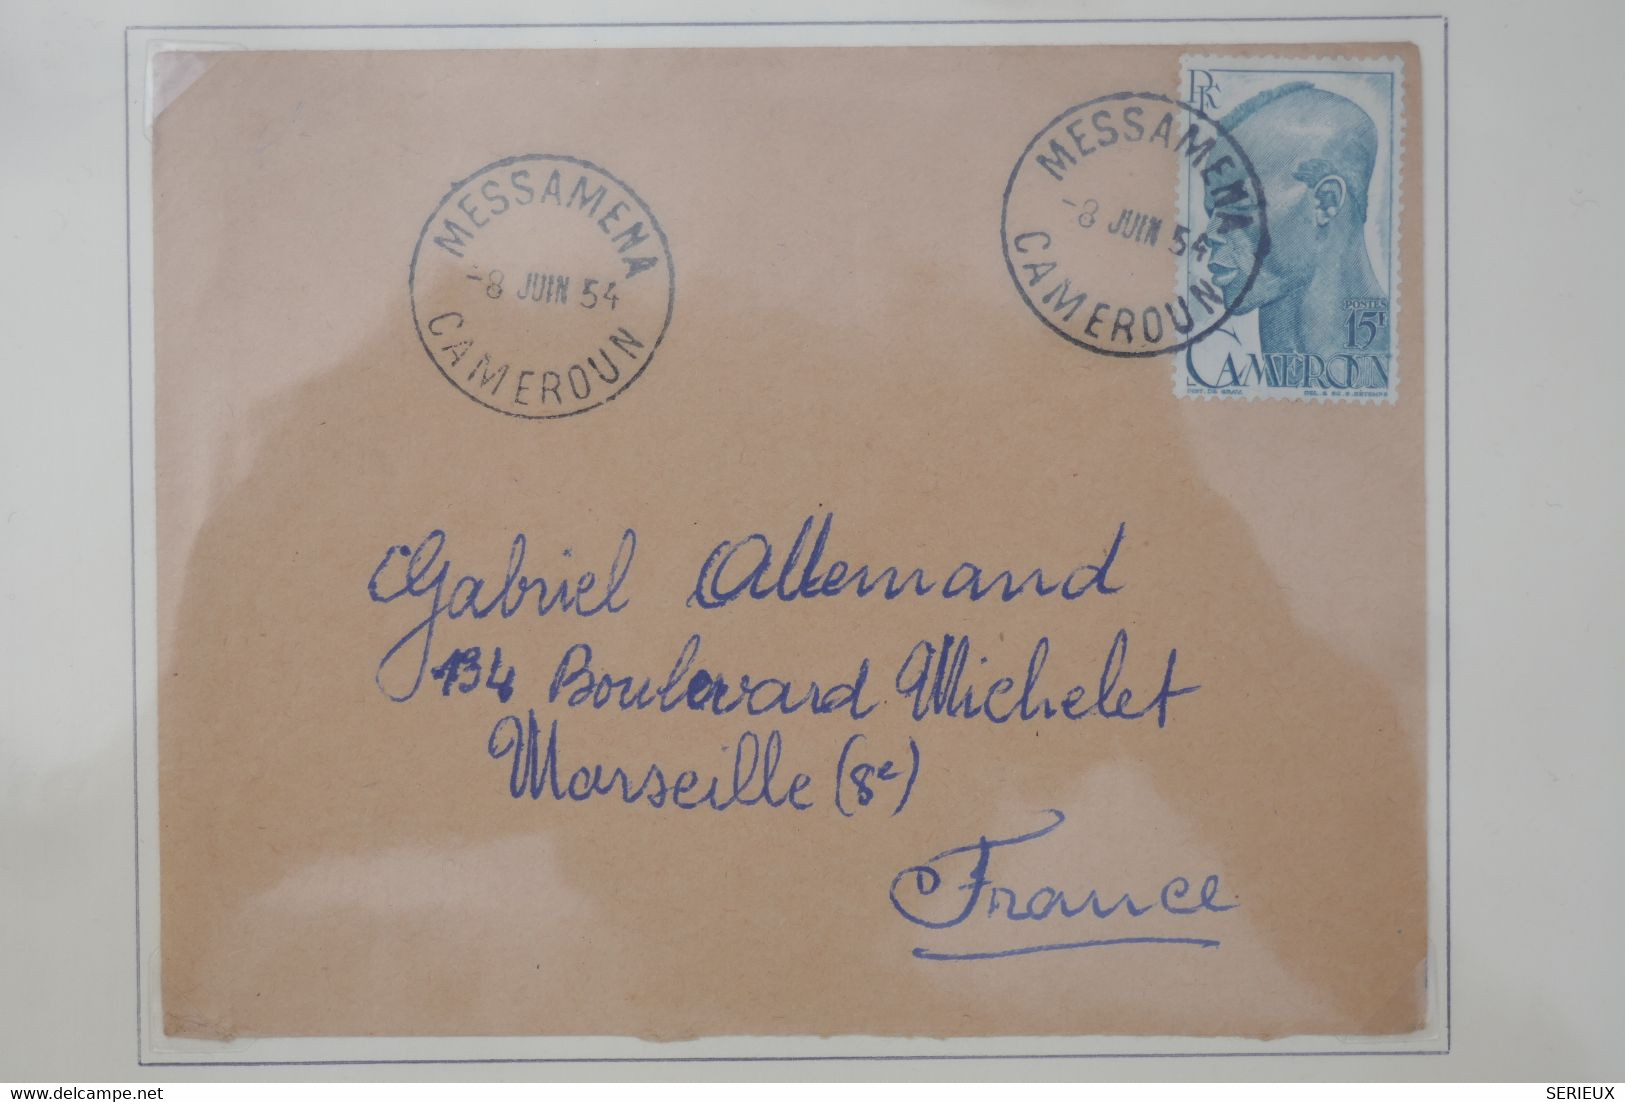 MESSAMENA
-8 JUIN 54
CAMEROUN
MESSAMENA
-8 JUIN 54
CAMEROUN
RF
POSTES
15F
CAMEROUN
INST. DE GRAV.
Gabriel Allemand
134 Boulevard Michelet
Marseille (8e)
France
www.delcampe.net
SERIEUX